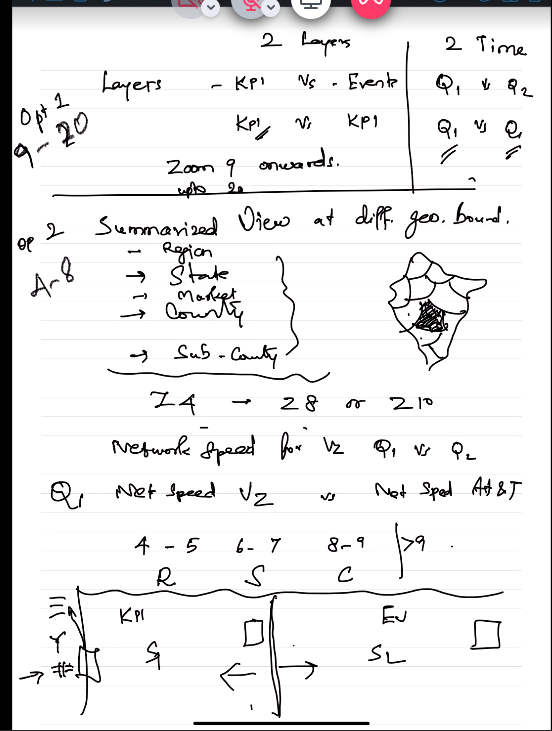 2 Layers 2 Time
Layers - KPI Vs - Events Q1 v Q2
Opt 1 KPI vs KPI Q1 vs Q1
9 - 20
Zoom 9 onwards.
upto 20
op 2 Summarized View at diff. geo. bound.
- Region
4-8 → State
- Market
→ County
→ Sub-County
Z4 → Z8 or Z10
Network Speed for VZ Q1 vs Q2
Q1 Net Speed VZ vs Net Sped At&T
4 - 5 6- 7 8-9 >9 .
R S C
KPI EV
SL